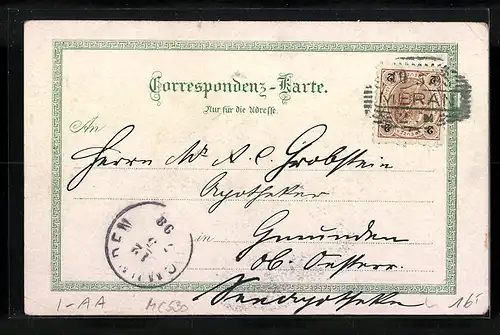 Correspondenz-Karte.
Nur für die Adresse.
An
MERAN
Herrn Mr. A. C. Grobstein
Apotheker
in Gmunden
Ob. Oesterr.
Seeapotheke
GMUNDEN
98
1-AA
MC530
16